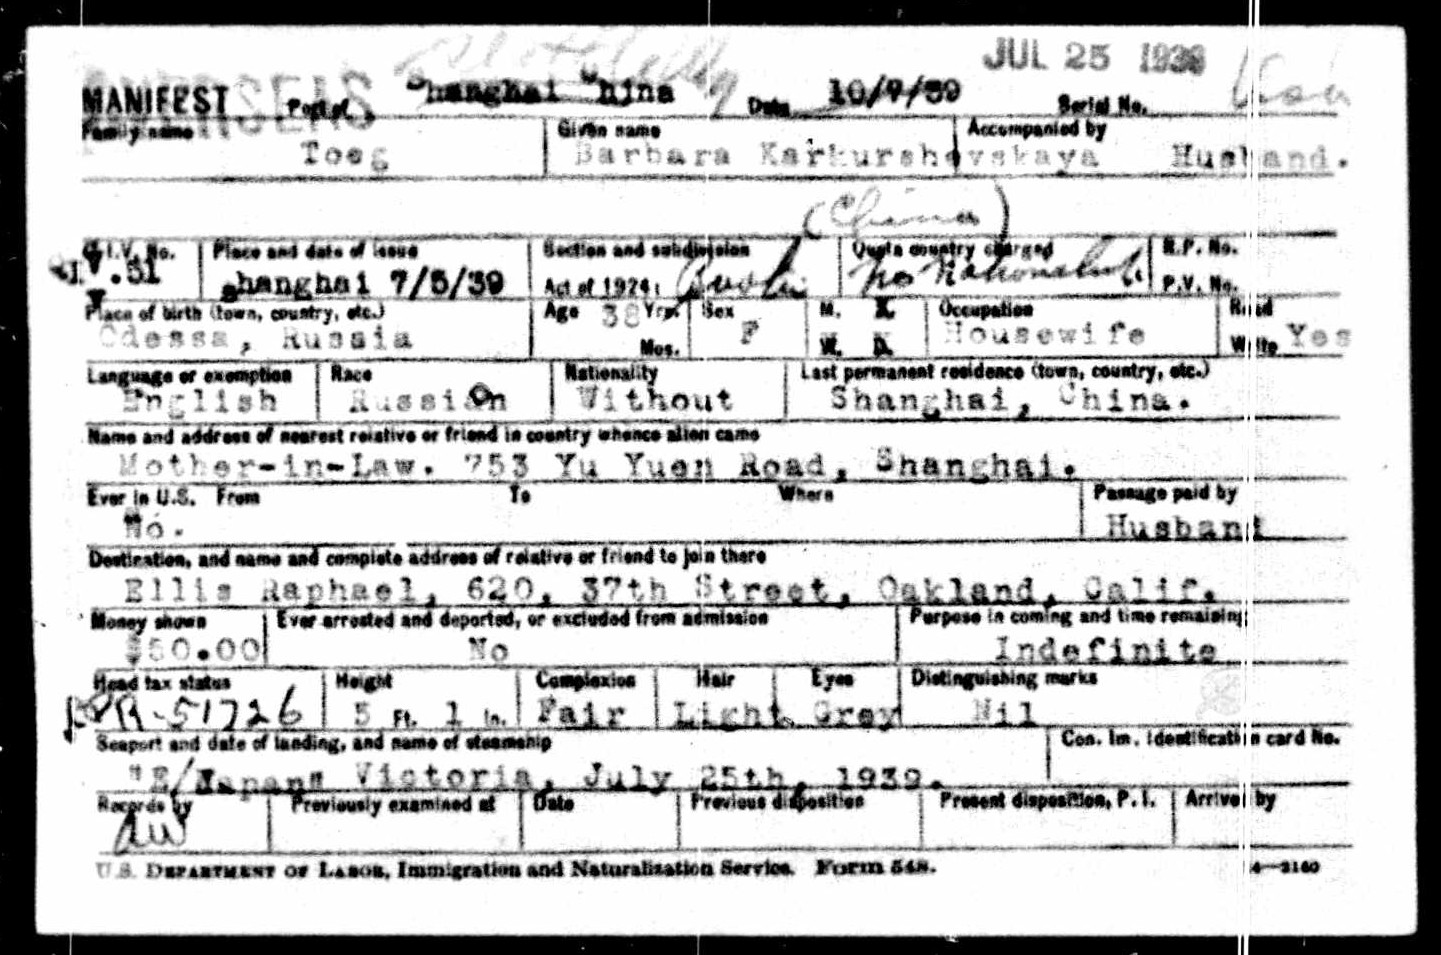 JUL 25 1939
MANIFEST OVERSEAS Port of Shanghai China Date 10/9/39 Serial No.
Family name Given name Accompanied by
Toeg Barbara Karkurshevskaya Husband.
(China)
I.V. No. Place and date of issue Section and subdivision Quota country charged R.P. No.
.51 Shanghai 7/5/39 Act of 1924: No Nationality P.V. No.
Place of birth (town, country, etc.) Age 38 Yrs. Sex M. X Occupation Read
Odessa, Russia Mos. F W. D. Housewife Write Yes
Language or exemption Race Nationality Last permanent residence (town, country, etc.)
English Russian Without Shanghai, China.
Name and address of nearest relative or friend in country whence alien came
Mother-in-Law. 753 Yu Yuen Road, Shanghai.
Ever in U.S. From To Where Passage paid by
No. Husband
Destination, and name and complete address of relative or friend to join there
Ellis Raphael, 620, 37th Street, Oakland, Calif.
Money shown Ever arrested and deported, or excluded from admission Purpose in coming and time remaining
$50.00 No Indefinite
Head tax status Height Complexion Hair Eyes Distinguishing marks
-51726 5 Ft. 1 In. Fair Light Grey Nil
Seaport and date of landing, and name of steamship Con. Im. Identification card No.
"E/Japan" Victoria, July 25th, 1939.
Records by Previously examined at Date Previous disposition Present disposition, P. I. Arrived by
aw
U.S. DEPARTMENT OF LABOR, Immigration and Naturalization Service. Form 548. 14—2160